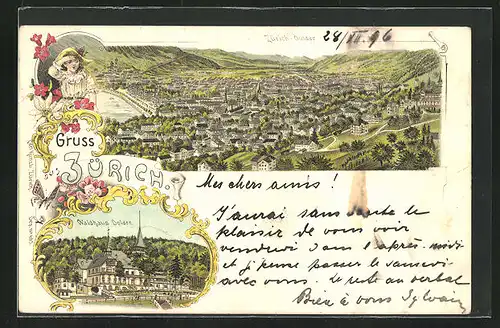 Zürich-Dolder
28/VI. 96
Gruss
ZÜRICH.
Waldhaus Dolder.
Mes chers amis!
J'aurai sans doute le
plaisir de vous voir
vendredi dans l'après-midi
et je pense passer le samedi
avec vous. Le reste au verbal
Bien à vous Sylvain